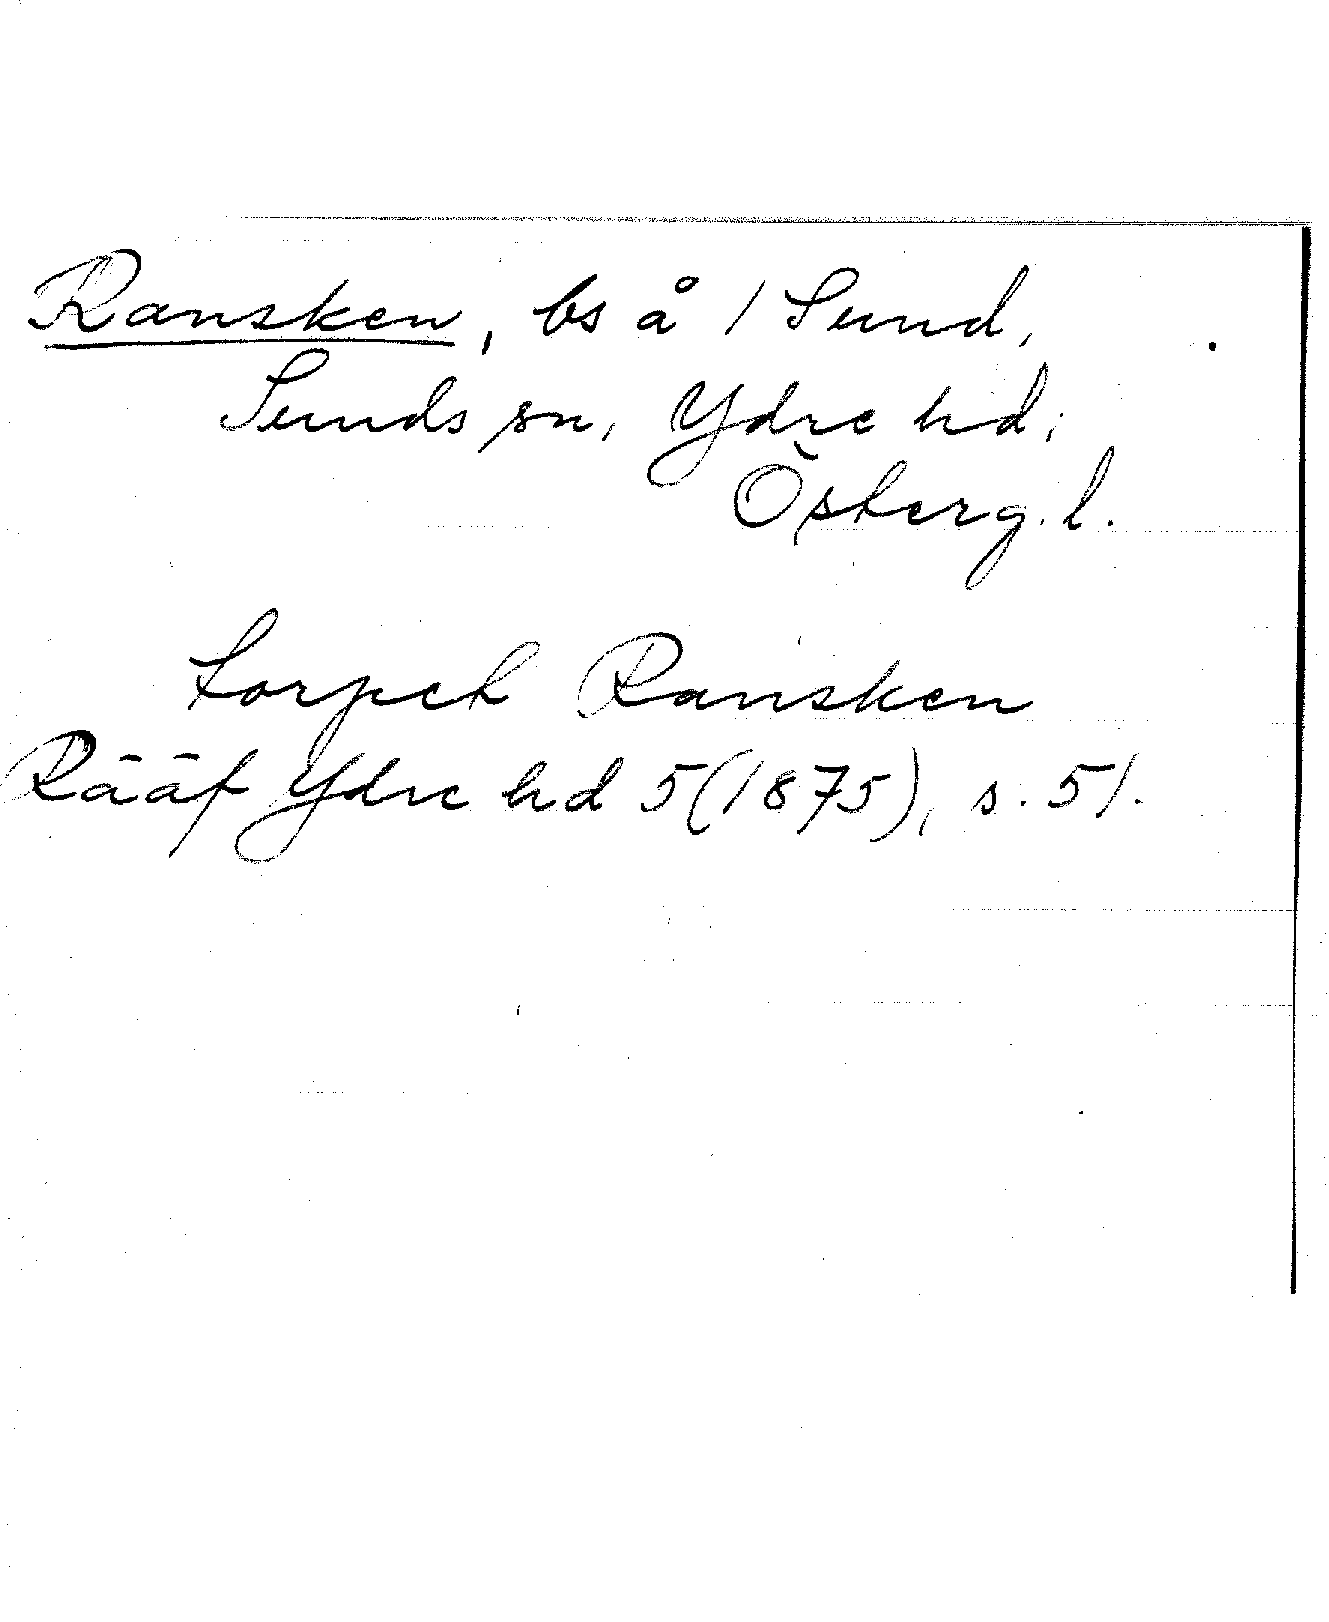 Ransken, bs å 1 Sund,
Sunds sn, Ydre hd;
Österg. l.
torpet Ransken
Rääf Ydre hd 5 (1875), s. 51.